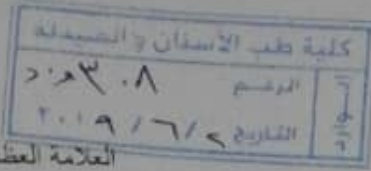 كلية طب الأسنان والصيدلة
الرقم ٣٠٨
التاريخ ٢ / ٦ / ٢٠١٩
العلامة العظ